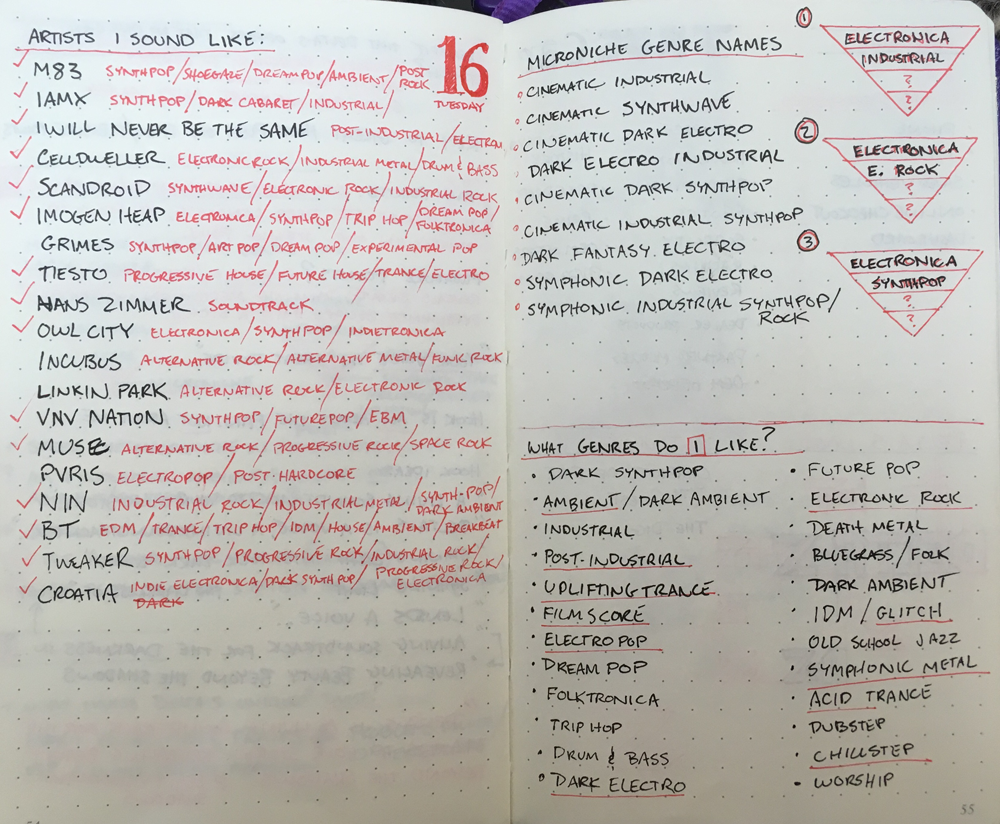 ARTISTS I SOUND LIKE:
16
TUESDAY
M83 SYNTHPOP/SHOEGAZE/DREAMPOP/AMBIENT/POST ROCK
IAMX SYNTHPOP/DARK CABARET/INDUSTRIAL/
I WILL NEVER BE THE SAME POST-INDUSTRIAL/ELECTRON
CELLDWELLER ELECTRONIC ROCK/INDUSTRIAL METAL/DRUM & BASS
SCANDROID SYNTHWAVE/ELECTRONIC ROCK/INDUSTRIAL ROCK
IMOGEN HEAP ELECTRONICA/SYNTHPOP/TRIP HOP/DREAM POP/FOLKTRONICA
GRIMES SYNTHPOP/ART POP/DREAM POP/EXPERIMENTAL POP
TIESTO PROGRESSIVE HOUSE/FUTURE HOUSE/TRANCE/ELECTRO
HANS ZIMMER SOUNDTRACK
OWL CITY ELECTRONICA/SYNTHPOP/INDIETRONICA
INCUBUS ALTERNATIVE ROCK/ALTERNATIVE METAL/FUNK ROCK
LINKIN PARK ALTERNATIVE ROCK/ELECTRONIC ROCK
VNV NATION SYNTHPOP/FUTUREPOP/EBM
MUSE ALTERNATIVE ROCK/PROGRESSIVE ROCK/SPACE ROCK
PVRIS ELECTROPOP/POST-HARDCORE
NIN INDUSTRIAL ROCK/INDUSTRIAL METAL/SYNTH-POP/DARK AMBIENT
BT EDM/TRANCE/TRIP HOP/IDM/HOUSE/AMBIENT/BREAKBEAT
TWEAKER SYNTHPOP/PROGRESSIVE ROCK/INDUSTRIAL ROCK/
CROATIA INDIE ELECTRONICA/DARK SYNTH POP/PROGRESSIVE ROCK/ELECTRONICA
DARK
MICRONICHE GENRE NAMES
CINEMATIC INDUSTRIAL
CINEMATIC SYNTHWAVE
CINEMATIC DARK ELECTRO
DARK ELECTRO INDUSTRIAL
CINEMATIC DARK SYNTHPOP
CINEMATIC INDUSTRIAL SYNTHPOP
DARK FANTASY ELECTRO
SYMPHONIC DARK ELECTRO
SYMPHONIC INDUSTRIAL SYNTHPOP/
ROCK
1
ELECTRONICA
INDUSTRIAL
?
?
2
ELECTRONICA
E. ROCK
?
?
3
ELECTRONICA
SYNTHPOP
?
?
WHAT GENRES DO I LIKE?
DARK SYNTHPOP
AMBIENT/DARK AMBIENT
INDUSTRIAL
POST-INDUSTRIAL
UPLIFTING TRANCE
FILM SCORE
ELECTROPOP
DREAM POP
FOLKTRONICA
TRIP HOP
DRUM & BASS
DARK ELECTRO
FUTURE POP
ELECTRONIC ROCK
DEATH METAL
BLUEGRASS/FOLK
DARK AMBIENT
IDM/GLITCH
OLD SCHOOL JAZZ
SYMPHONIC METAL
ACID TRANCE
DUBSTEP
CHILLSTEP
WORSHIP
55